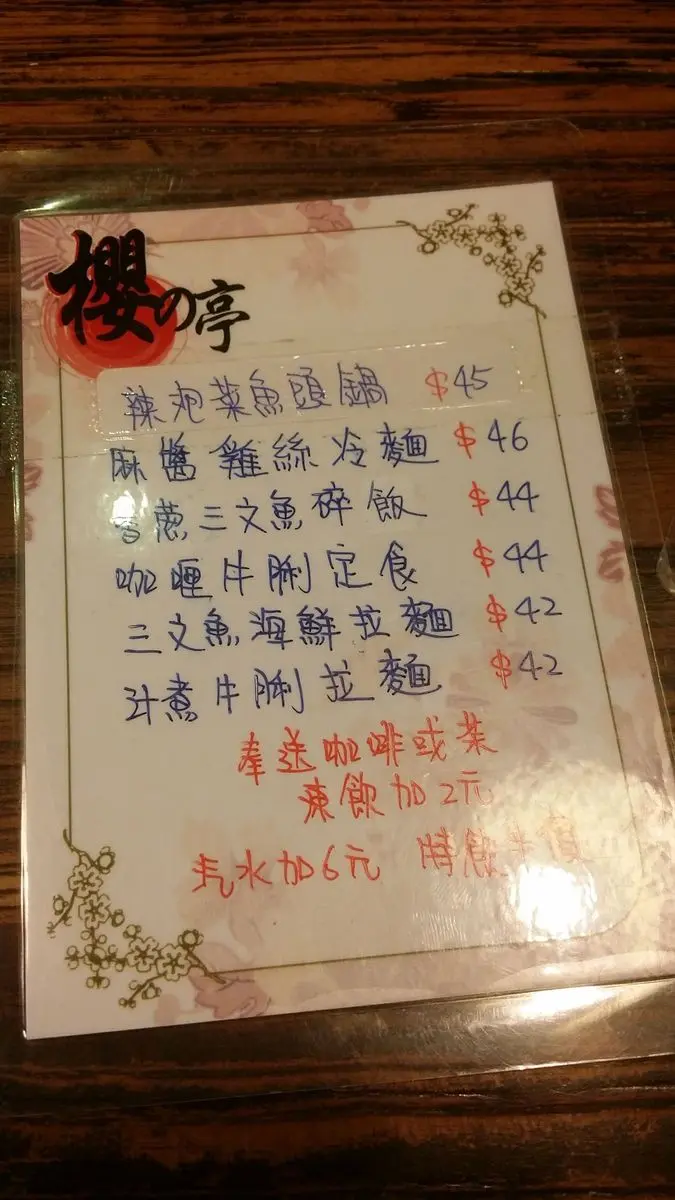 櫻の亭
辣泡菜魚頭鍋 $45
麻醬雞絲冷麵 $46
香蔥三文魚碎飯 $44
咖喱牛脷定食 $44
三文魚海鮮拉麵 $42
汁煮牛脷拉麵 $42
奉送咖啡或茶
凍飲加2元
汽水加6元 特飲半價